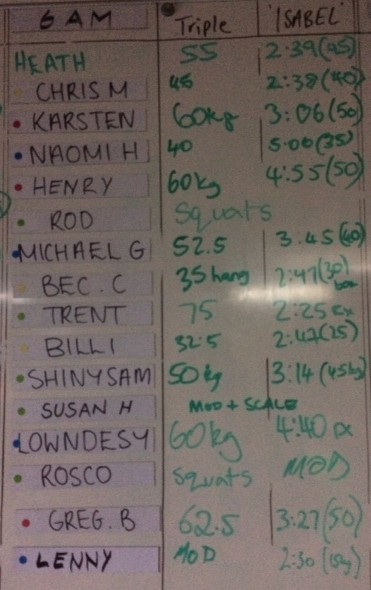 6 AM Triple 'ISABEL'
HEATH 55 2:39(45)
CHRIS M 45 2:38(40)
KARSTEN 60kg 3:06(50)
NAOMI H 40 5:00(35)
HENRY 60kg 4:55(50)
ROD Squats
MICHAEL G 52.5 3.45(40)
BEC.C 35 hang 2:47(30) bar
TRENT 75 2:25 rx
BILLI 32.5 2:42(25)
SHINYSAM 50kg 3:14(45kg)
SUSAN H MOD + SCALE
LOWNDESY 60kg 4:40 rx
ROSCO Squats MOD
GREG.B 62.5 3:27(50)
LENNY MOD 2:30